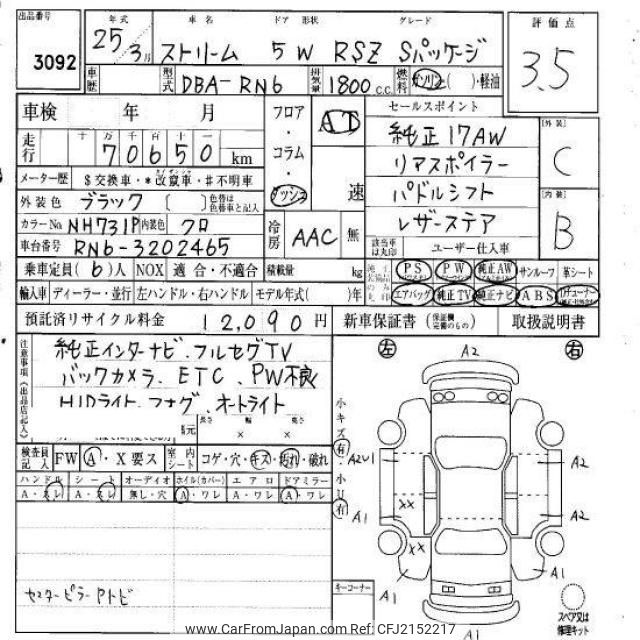 出品番号 年式 車名 ドア 形状 グレード 評価点
3092 25/3月 ストリーム 5W RSZ Sパッケージ 3.5
車歴 型式 DBA-RN6 排気量 1800 c.c. 燃料 ガソリン ( )・軽油
車検 年 月 フロア・コラム・ AT セールスポイント
走行 十 万 千 百 十 一 純正17AW [外装] C
70650 km リアスポイラー
メーター歴 $交換車・*改竄車・#不明車 速 パドルシフト [内装] B
外装色 ブラック [ ] 色替は色替車と記入 レザーステア
カラーNo. NH731P 内装色 クロ 冷房 AAC 無 該当車は丸印 ユーザー仕入車
車台番号 RN6-3202465
乗車定員(6)人 NOX 適合・不適合 積載量 kg PS PW 純正AW サンルーフ 革シート
輸入車 ディーラー・並行 左ハンドル・右ハンドル モデル年式( )年 エアバッグ 純正TV 純正ナビ ABS
預託済リサイクル料金 12,090円 新車保証書 (保証欄完備のもの) 取扱説明書
注意事項(出品店記入) 純正インターナビ.フルセグTV
バックカメラ、ETC、PW不良
HIDライト.フォグ.オートライト
長さ 幅 高さ
× ×
左 A2 右
小キズ 有 小U 有
検査員記入 FW A・X要ス 室内シート コゲ・穴・キズ・汚れ・破れ
ハンドル シート オーディオ ホイル(カバー) エアロ ドアミラー
A・スレ A・スレ 無し・穴 A・ワレ A・ワレ A・ワレ
A2U1 A2
XX A2
A1 XX
A1 A1
A1
センターピラーアトビ
キーコーナー
スペア又は修理キット
www.CarFromJapan.com Ref: CFJ2152217